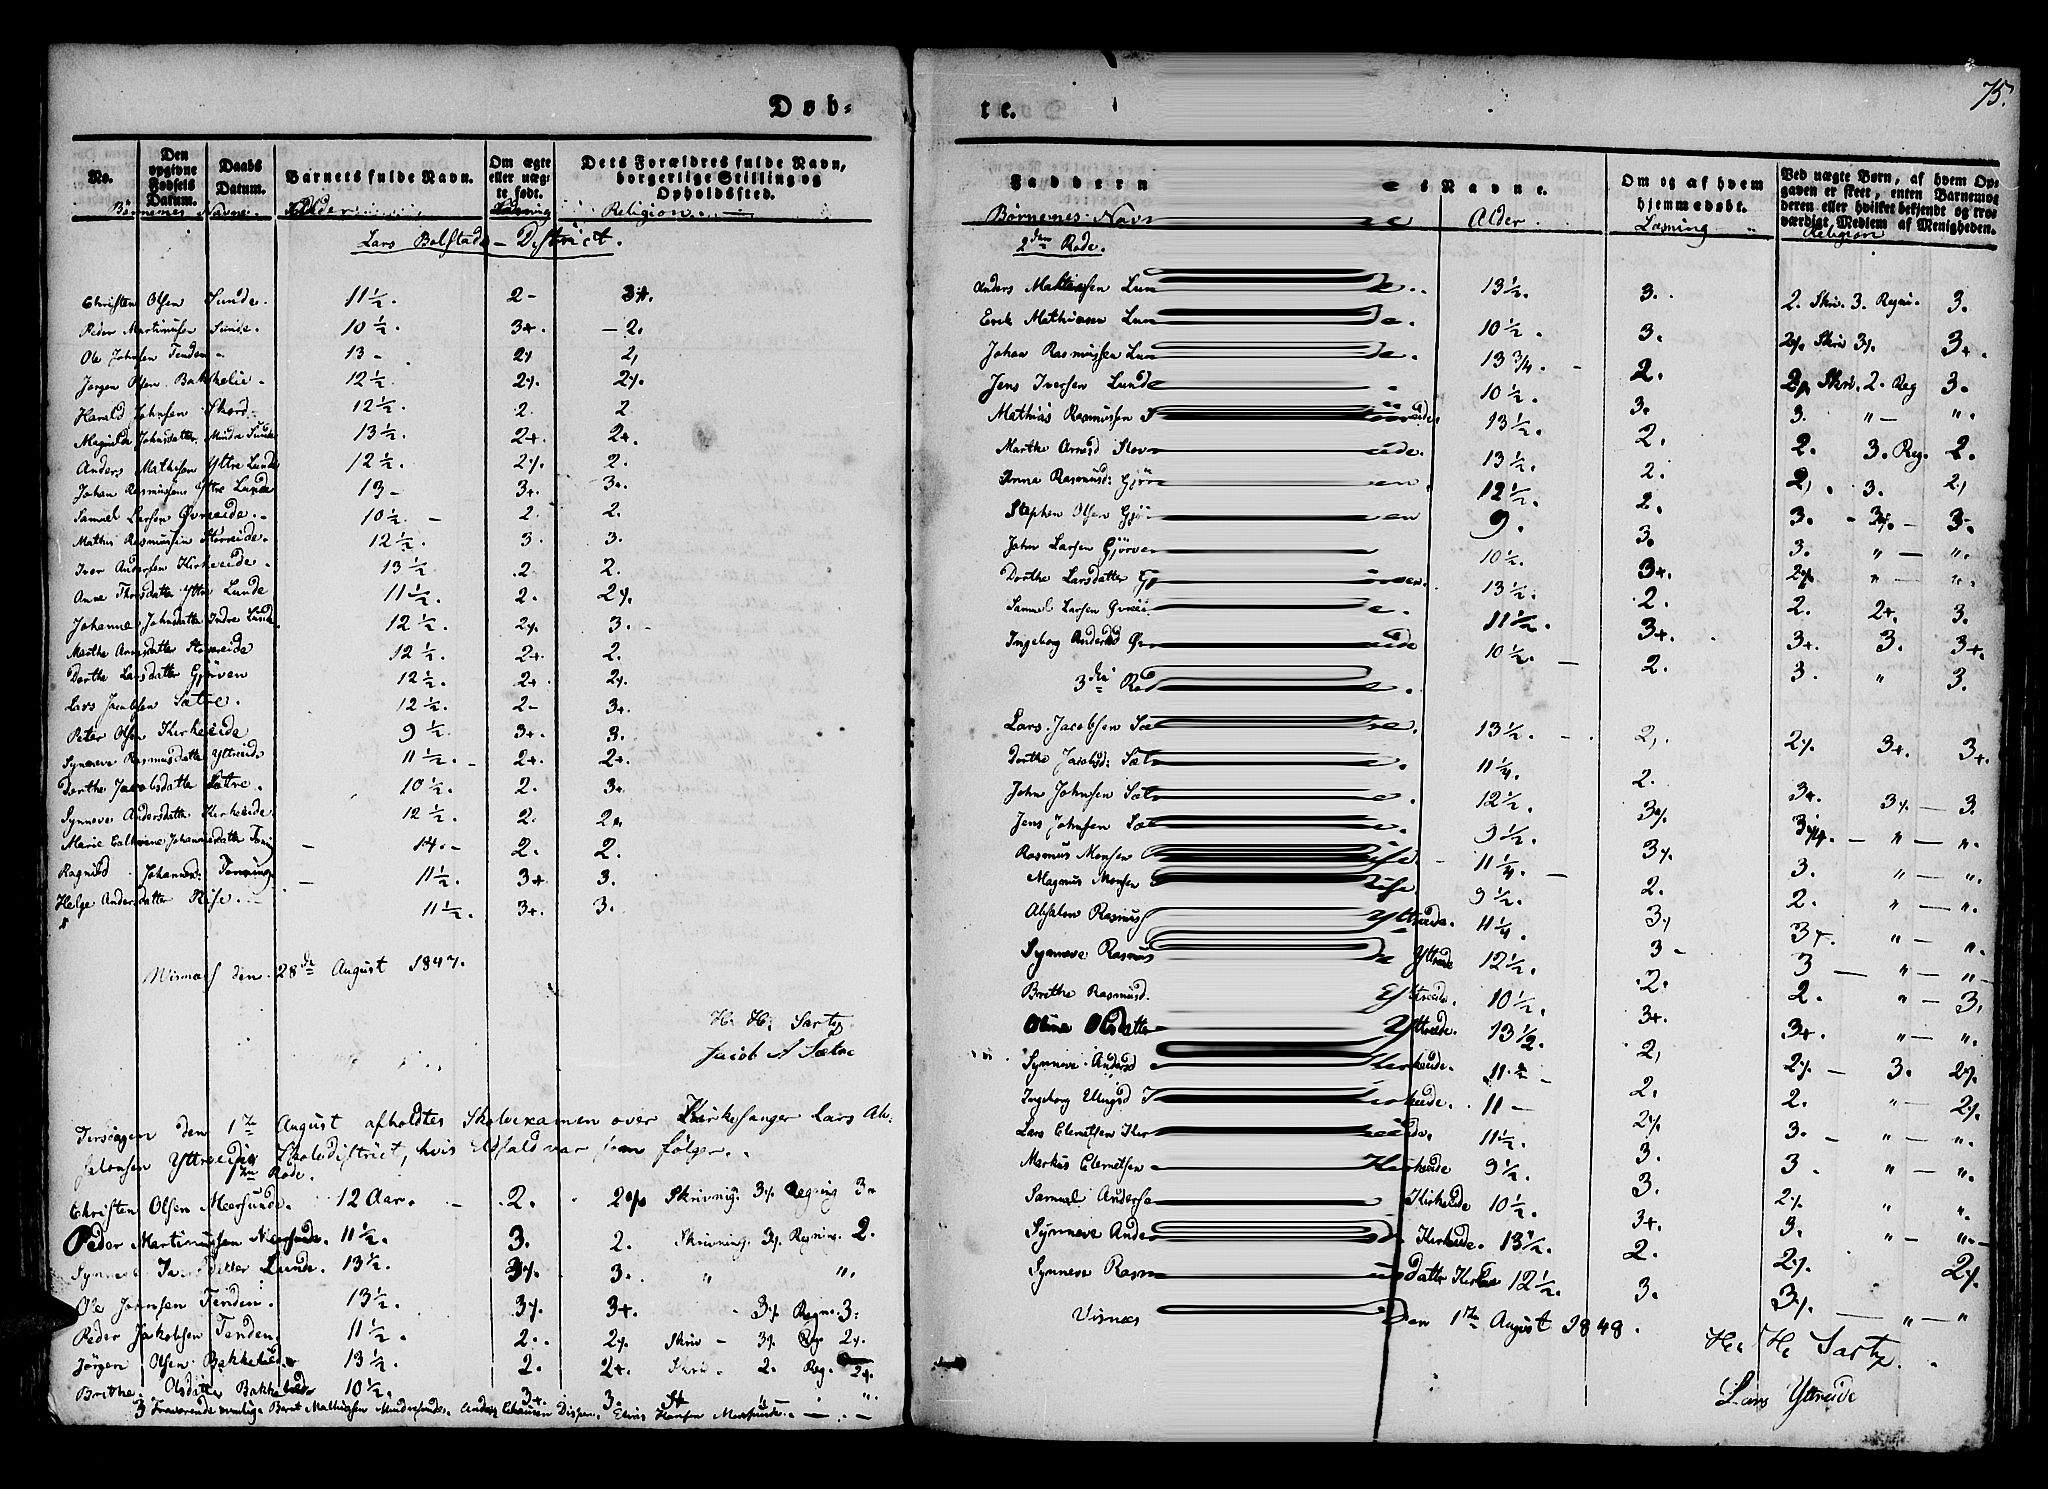 Døb=
No.
Den opgivne Fødsels Datum.
Daabs Datum.
Barnets fulde Navn.
Om ægte eller uægte født.
Dets Forældres fulde Navn, borgerlige Stilling og Opholdssted.
Børnenes Navne. Alder Læsning Religion.
Lars Bolstads District.
Christen Olsen Sunde. 11½. 2- 3+.
Peder Martinusen Sunde. 10½. 3+. -2.
Ole Johnsen Tenden. 13- 2% 2,
Jørgen Olsen Bakkelie. 12½. 2%. 2%.
Harald Johnsen Skord. 12½. 2. 2.
Magnilde Johnsdatter Mindre Sunde 13½. 2+. 2+.
Anders Mathisen Yttre Lunde 12½. 2%. 2.
Johan Rasmussen Yttre Lunde 13- 3+. 3+.
Samuel Larsen Øvreeide. 10½. - 2. 2.
Mathis Rasmussen Størreide. 12½. 3. 3.
Iver Andersen Kirkeeide. 13½ 2. 2.
Anne Thorsdatter Yttre Lunde 11½. 2. 2%.
Johanne Johnsdatter Indre Lunde. 12½. 2%. 3. -
Marthe Arnesdatter Storreide 12½. 2+. 2.
Dorthe Larsdatter Gjørven 12½. 2+. 2%.
Lars Jacobsen Sætre. 12½. 2- 3+.
Peter Olsen Kirkeeide 9½. 3+. 3.
Synneve Rasmusdatter Yttreide 11½. - 2+. 2+.
Dorthe Jacobsdatter Sætre. 10½. 2. 3+.
Synneve Andersdatter Kirkeeide. 12½. 2. 2.
Marie Cathrine Johannesdatter - 14. - 2. 2.
Ragnild Johannesd: Tenning - 11½. 3+ 3.
Helge Andersdatter Rise. - 11½. 3+. 3.
den 28de August 1847.
H. H. Sartz
Jacob A Sætre
Tirsdagen den 1ste August afholdtes Skoleexamen over Kirkesanger Lars Ab-
salonsen Yttreeids Skoledistrict, hvis Udfald var som følger.
1ste Rode.
Christen Olsen Meersunde. 12 Aar. - 2. 2% Skrivnig. 3% Regning 3.
Peder Martinussen Meersunde. 11½. 3. 2. Skrivning. 3%. Regning. 2.
Synneve Lunde. 13½. 3%. 3. " "
Ole Johnsen Tenden. 13½. 3%. 3+. - 3% Regne. 3.
Peder Jakobsen Tenden. 11½. 2. 2%. Skriv - 3%. Reg 2%.
Jørgen Olsen Bakkelid. 13½. 2. 2+. Skriv - 2. Reg. 2+.
Brithe Olsdatter Bakkelid 10½. 3+. 3.
3 Fraværende nemlig Bernt Mathissen Mindresunde. Hansen Meersunde. -
te.
75.
Fadder[n]es Navne.
Om og af hvem hjemmedøbt.
Ved uægte Børn, af hvem Opgaven er skeet, enten Barnemoderen eller hvilket bekjendt og troværdigt Medlem af Menigheden.
Børnenes Navne Alder. Læsning Religion
2den Rode.
Anders Mathisen Lunde.. 13½. 3. 2. Skri. 3. Regni. 3.
Erik Mathiasen Lunde. 10½. 3. 2%. Skri 3%. 3+.
Johan Rasmussen Lunde. 13¾. - 2. 2% Skri. 2. Reg 3.
Jens Iversen Lunde 10½. 3. 3. " - ".
Mathias Rasmussen Størreide. 13½. 2. 2. 3. Reg. 2.
Marthe Arnesd Storreide. 13½. 2. 2, . 3. 2,
Anna Rasmusd: Gjørven 12½. 2. 3. - 3%. - 3.
Stephen Olsen Gjørven 9. 3. 3. " - ".
John Larsen Gjørven 10½. 3+. 2% " - ".
Dorthe Larsdatter Gjørven. 13½. 2. 2. 2+. 3.
Samuel Larsen Øvreeide. 11½. 3+. 3+. 3. 3+.
Ingeborg Andersd Øvreeide 10½. - 2. 3. " 3.
3die Rode.
Lars Jacobsen Sætre. 13½. - 2,. 2% 3+. 3+.
Dorthe Jacobsd: Sætre. 11¼. 2. 3+. 3% - 3.
John Johnsen Sætre. 12½. 3%. - " - ".
Jens Johnsen Sætre. 9½. 3%. 3. " - ".
Rasmus Monsen Rise - 11¼. - 2. 2. " - ".
Magnus Monsen Rise 9½. 3% 3+. " - ".
Absalon Rasmus Yttreide. 11¼. 3 - 3 - " - "
Synneve Rasmus Yttreide 12½. 2. 2. " - 3.
Brethe Rasmusd. Yttreide. 10½. 3+. 3+. " - ".
Oline Olsdatter Yttreide. 13½. 2, 2% - 3. 2%.
Synneve Andersd Kirkeeide. 2. 2. " - 2%.
Ingeborg Ellingsd Kirkeeide. 11- 2% 3. - " - ".
Lars Clemetsen Kirkeeide. 11½. 3. 3. " - ".
Markus Clemetsen Kirkeeide 9½. 3. 2% " ".
Samuel Andersen Kirkeeide 10½. 3+. 3. " - ".-
Synneve Kirkeeide. 13½. 2. 2%. 2%.
Synneve Rasmusdatter 12½. 3. 3%. - " - "
Visnæs Den 1ste August 1848.
H. H. Sartz.
Lars Yttreide